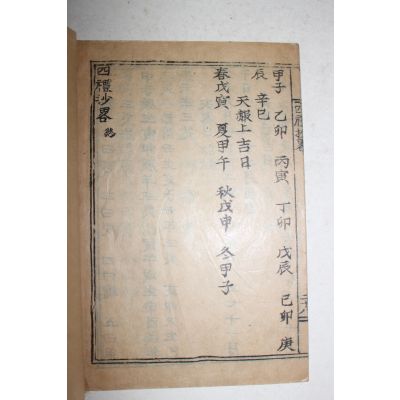 甲子 乙卯 丙寅 丁卯 戊辰 己卯 庚
辰 辛巳
天赧上吉日
春戊寅 夏甲午 秋戊申 冬甲子
四禮沙畧 終
四禮抄畧